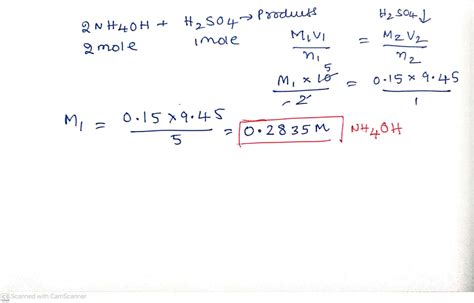 2NH4OH + H2SO4 → Products
2 mole 1 mole
H2SO4 ↓
M1V1 / n1 = M2V2 / n2
M1 × 10 5 / 2 = 0.15 × 9.45 / 1
M1 = 0.15 × 9.45 / 5 = 0.2835 M NH4OH
CS Scanned with CamScanner